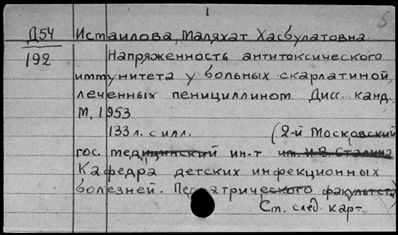 1
5
Д54 Исмаилова, Маляхат Хасбулатовна
192 Напряженность антитоксического
иммунитета у больных скарлатиной,
леченных пенициллином Дисс. канд.
М, 1953
133 л. с илл. (2-й Московский
гос. медицинский ин-т им. И.В. Сталина
Кафедра детских инфекционных
болезней. Педиатрического факультета
См. след. карт.